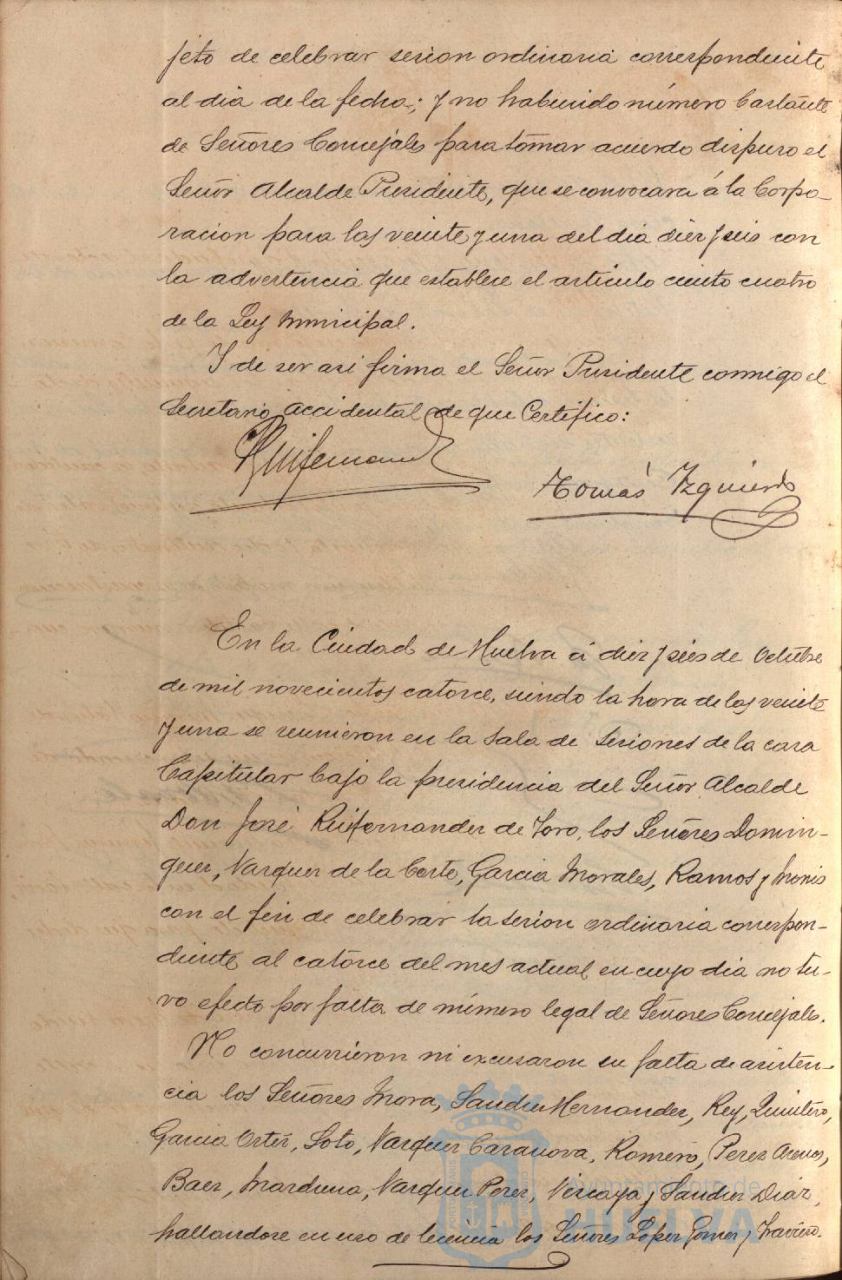 jeto de celebrar sesion ordinaria correspondiente
al dia de la fecha; y no habiendo número bastante
de Señores Concejales para tomar acuerdo dispuso el
Señor Alcalde Presidente, que se convocara á la Corpo-
racion para las veinte y una del dia diez y seis con
la advertencia que establece el artículo ciento cuatro
de la Ley Municipal.
Y de ser asi firma el Señor Presidente conmigo el
Secretario accidental de que Certifico:
Ruifernandez
Tomás Izquierdo
En la Ciudad de Huelva á diez y seis de Octubre
de mil novecientos catorce, siendo la hora de las veinte
y una se reunieron en la Sala de Sesiones de la casa
Capitular bajo la presidencia del Señor Alcalde
Don José Ruifernandez de Toro, los Señores Domin-
guez, Vazquez de la Corte, Garcia Morales, Ramos y
con el fin de celebrar la sesion ordinaria correspon-
diente al catorce del mes actual en cuyo dia no tu-
vo efecto por falta de número legal de Señores Concejales.
No concurrieron ni excusaron su falta de asisten-
cia los Señores Mora, Sanchez Hernandez, Rey, Quintero,
Garcia Ortiz, Soto, Vazquez Casanova, Romero, Perez
Baez, Vazquez Perez, Vizcaya y Sanchez Diaz,
hallandose en uso de licencia los Señores López Gomez y
Ayuntamiento de
HUELVA